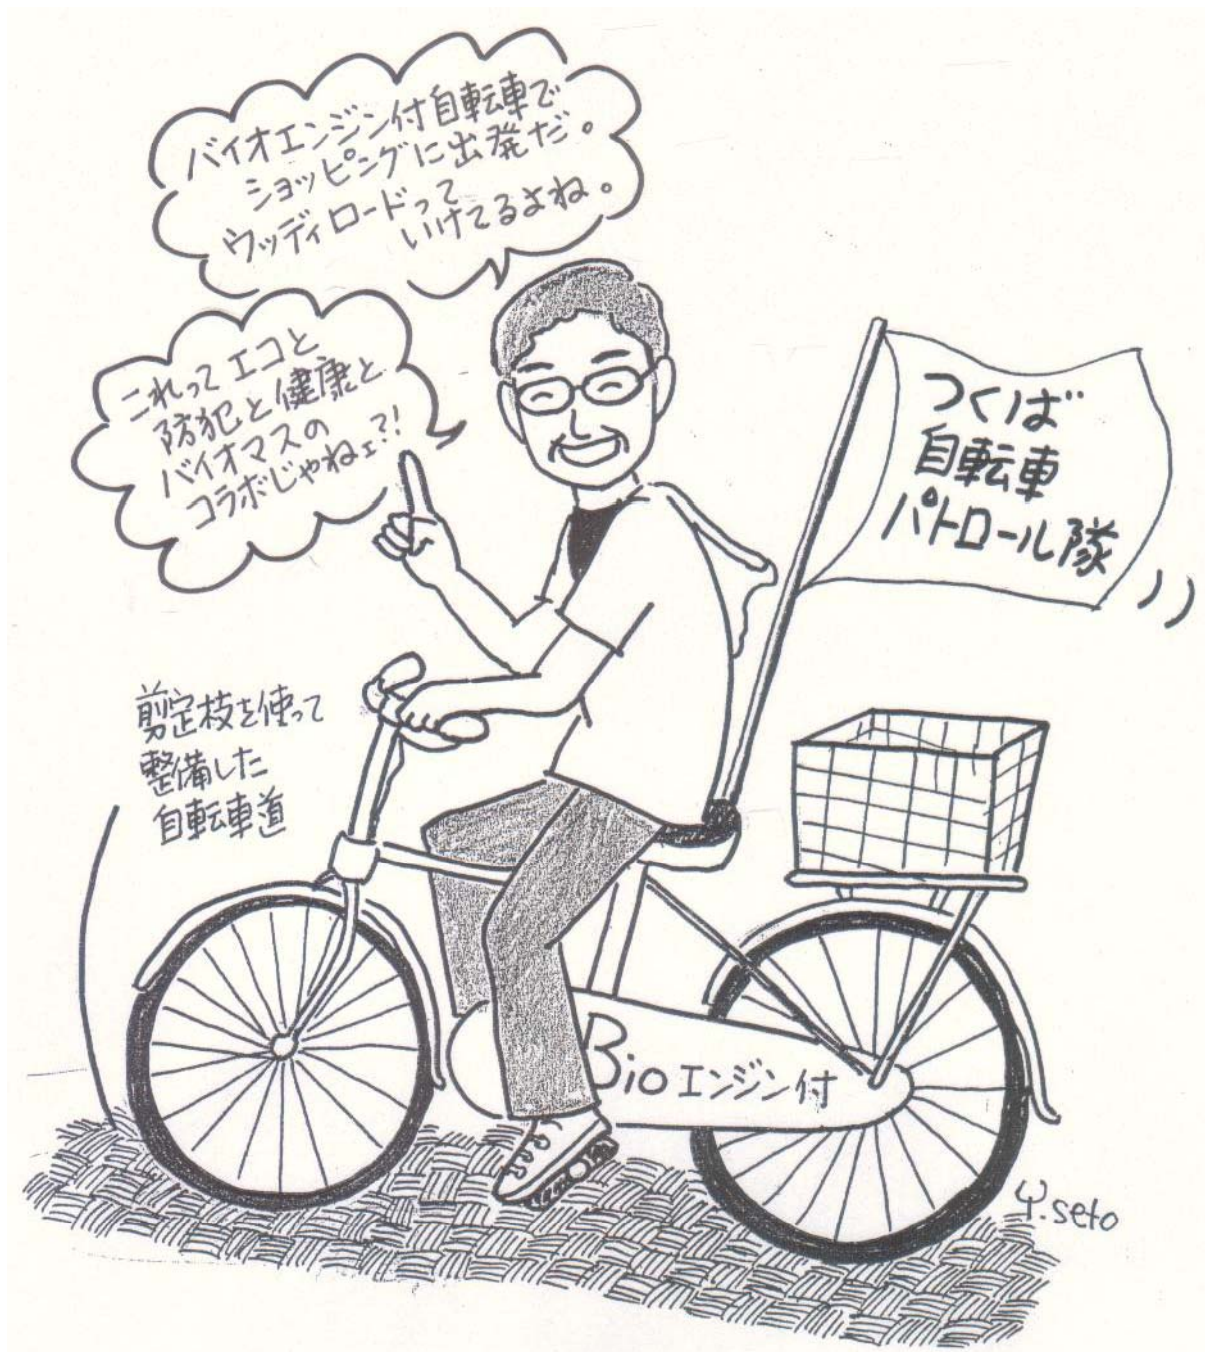 バイオエンジン付自転車で
ショッピングに出発だ。
ウッディロードって
いけてるよね。
これってエコと
防犯と健康と
バイオマスの
コラボじゃねェ?!
つくば
自転車
パトロール隊
剪定枝を使って
整備した
自転車道
Bioエンジン付
Y.seto